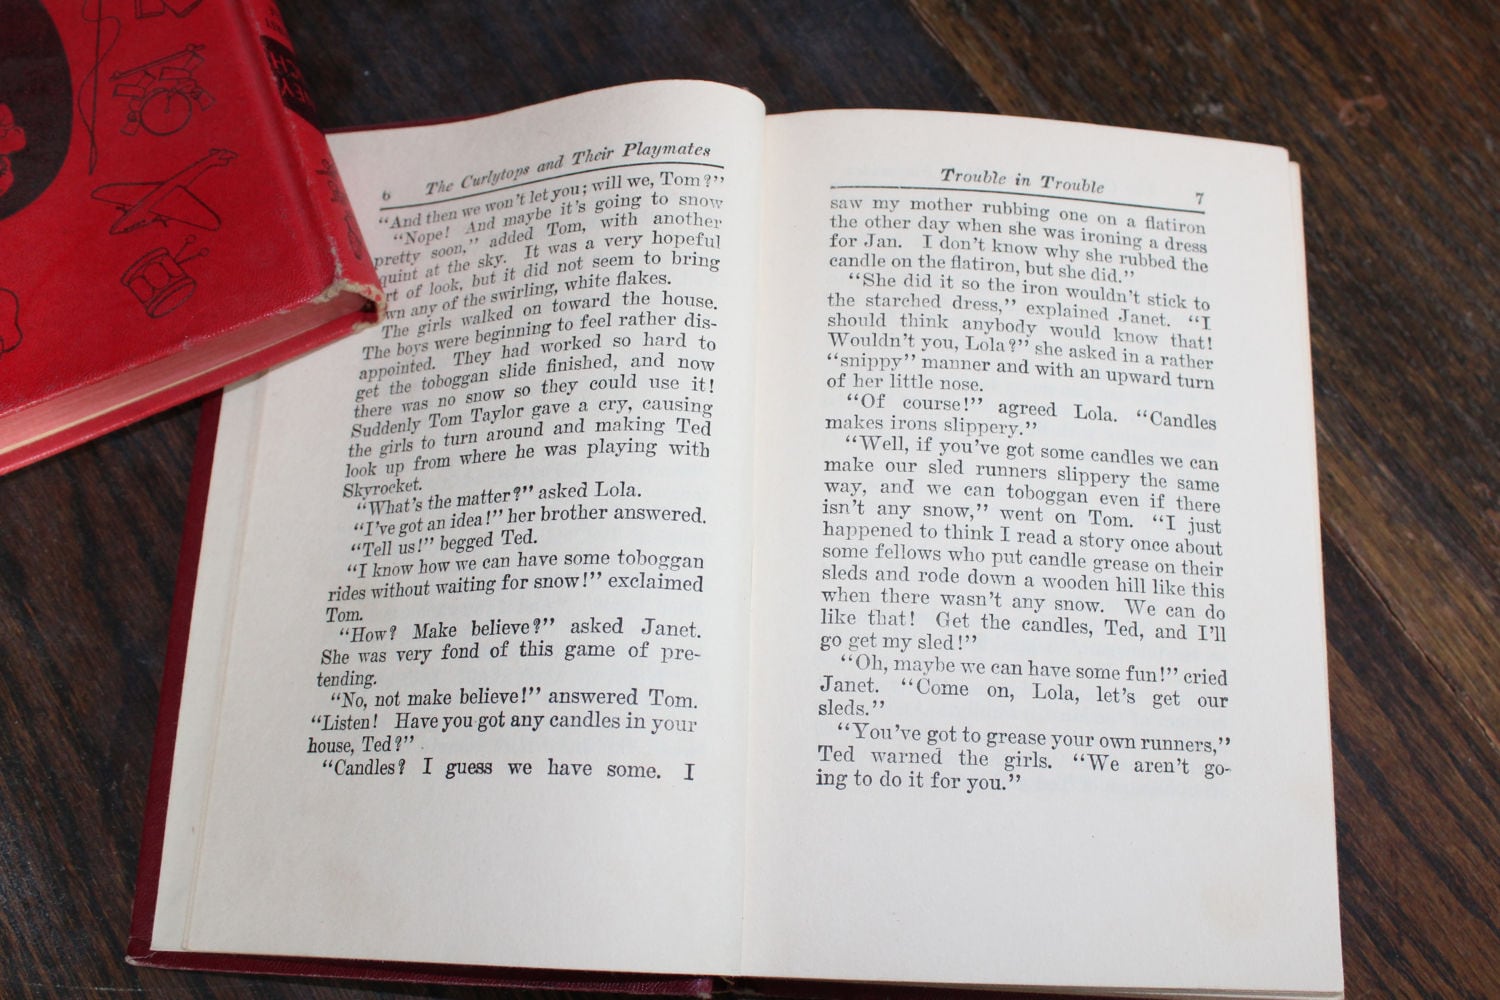 6 The Curlytops and Their Playmates
“And then we won’t let you; will we, Tom?”
“Nope! And maybe it’s going to snow
pretty soon,” added Tom, with another
quint at the sky. It was a very hopeful
rt of look, but it did not seem to bring
wn any of the swirling, white flakes.
The girls walked on toward the house.
The boys were beginning to feel rather dis-
appointed. They had worked so hard to
get the toboggan slide finished, and now
there was no snow so they could use it!
Suddenly Tom Taylor gave a cry, causing
the girls to turn around and making Ted
look up from where he was playing with
Skyrocket.
“What’s the matter?” asked Lola.
“I’ve got an idea!” her brother answered.
“Tell us!” begged Ted.
“I know how we can have some toboggan
rides without waiting for snow!” exclaimed
Tom.
“How? Make believe?” asked Janet.
She was very fond of this game of pre-
tending.
“No, not make believe!” answered Tom.
“Listen! Have you got any candles in your
house, Ted?”
“Candles? I guess we have some. I
Trouble in Trouble 7
saw my mother rubbing one on a flatiron
the other day when she was ironing a dress
for Jan. I don’t know why she rubbed the
candle on the flatiron, but she did.”
“She did it so the iron wouldn’t stick to
the starched dress,” explained Janet. “I
should think anybody would know that!
Wouldn’t you, Lola?” she asked in a rather
“snippy” manner and with an upward turn
of her little nose.
“Of course!” agreed Lola. “Candles
makes irons slippery.”
“Well, if you’ve got some candles we can
make our sled runners slippery the same
way, and we can toboggan even if there
isn’t any snow,” went on Tom. “I just
happened to think I read a story once about
some fellows who put candle grease on their
sleds and rode down a wooden hill like this
when there wasn’t any snow. We can do
like that! Get the candles, Ted, and I’ll
go get my sled!”
“Oh, maybe we can have some fun!” cried
Janet. “Come on, Lola, let’s get our
sleds.”
“You’ve got to grease your own runners,”
Ted warned the girls. “We aren’t go-
ing to do it for you.”